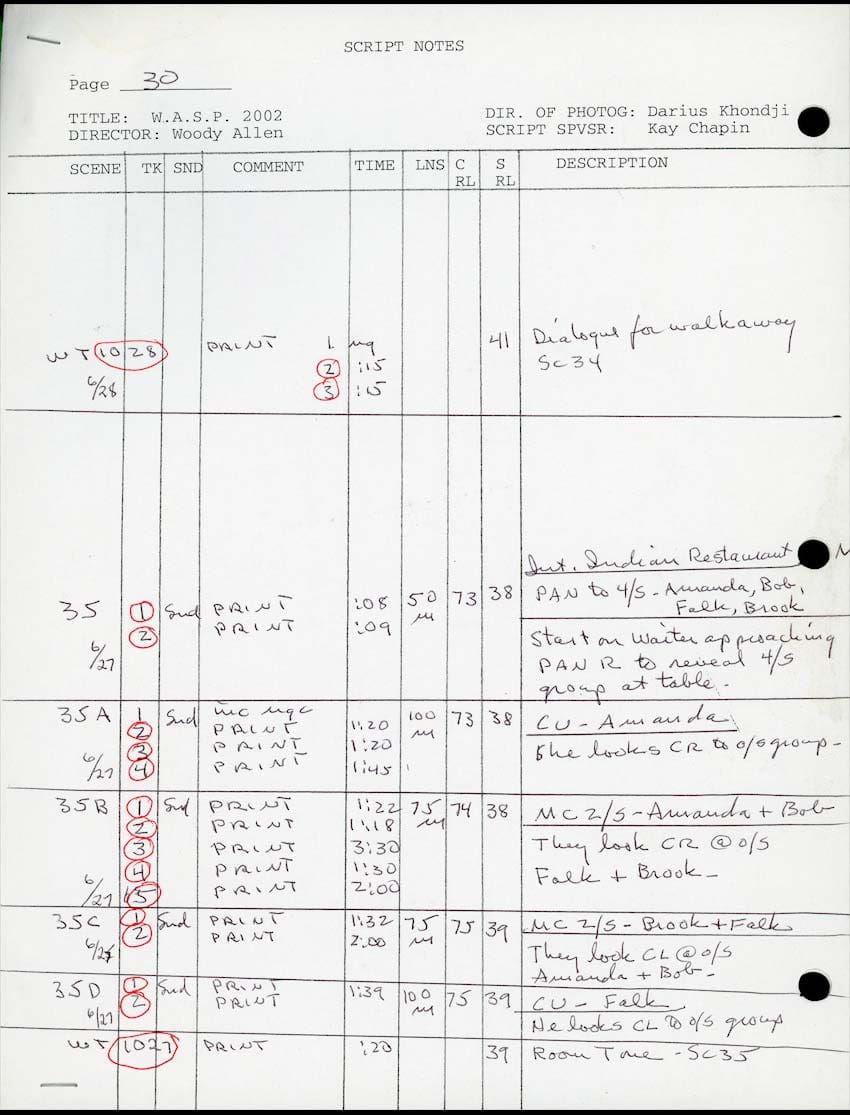 SCRIPT NOTES
Page 30
TITLE: W.A.S.P. 2002
DIRECTOR: Woody Allen
DIR. OF PHOTOG: Darius Khondji
SCRIPT SPVSR: Kay Chapin
SCENE TK SND COMMENT TIME LNS C RL S RL DESCRIPTION
WT 1028 PRINT 1 41 Dialogue for walkaway
6/28 2 :15 Sc34
3 :15
Int. Indian Restaurant
35 1 Snd PRINT :08 50 73 38 PAN to 4/S - Amanda, Bob,
2 PRINT :09 Falk, Brook
6/27 Start on Waiter approaching
PAN R to reveal 4/S
group at table.
35A 1 Snd 100 73 38 CU - Amanda
2 PRINT 1:20
3 PRINT 1:20 She looks CR to o/s group -
6/27 4 PRINT 1:45
35B 1 Snd PRINT 1:22 75 74 38 MC 2/S - Amanda + Bob
2 PRINT 1:18
3 PRINT 3:30 They look CR @ o/s
4 PRINT 1:30 Falk + Brook -
6/27 5 PRINT 2:00
35C 1 Snd PRINT 1:32 75 75 39 MC 2/S - Brook + Falk
2 PRINT 2:00 They look CL @ o/s
Amanda + Bob -
35D 1 Snd PRINT 1:39 100 75 39 CU - Falk
6/27 2 PRINT He looks CL to o/s group
WT 1027 PRINT :20 39 Room Tone - Sc35